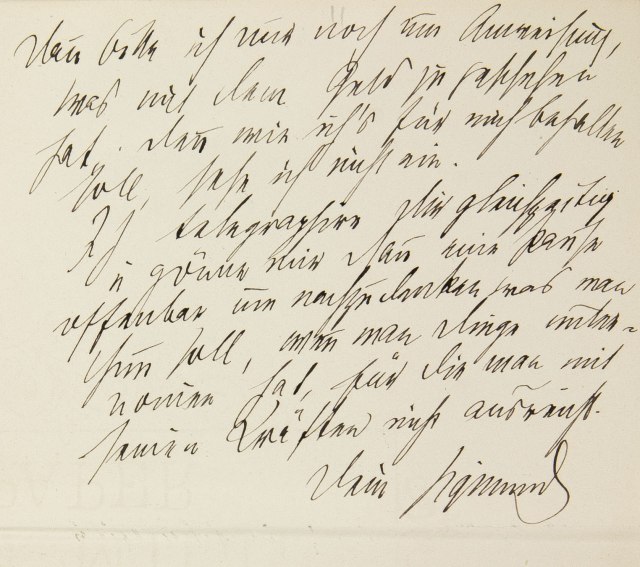 Dann bitte ich nur noch um Anweisung,
was mit dem Geld zu geschehen
hat. Denn wie ich's für mich behalten
soll, sehe ich nicht ein.
Ich telegraphire Dir gleichzeitig
u gönne mir dann eine Pause
offenbar um nachzudenken was man
thun soll, wenn man Dinge unter-
nomen hat, für die man mit
seinen Kräften nicht ausreicht.
Dein Sigmund